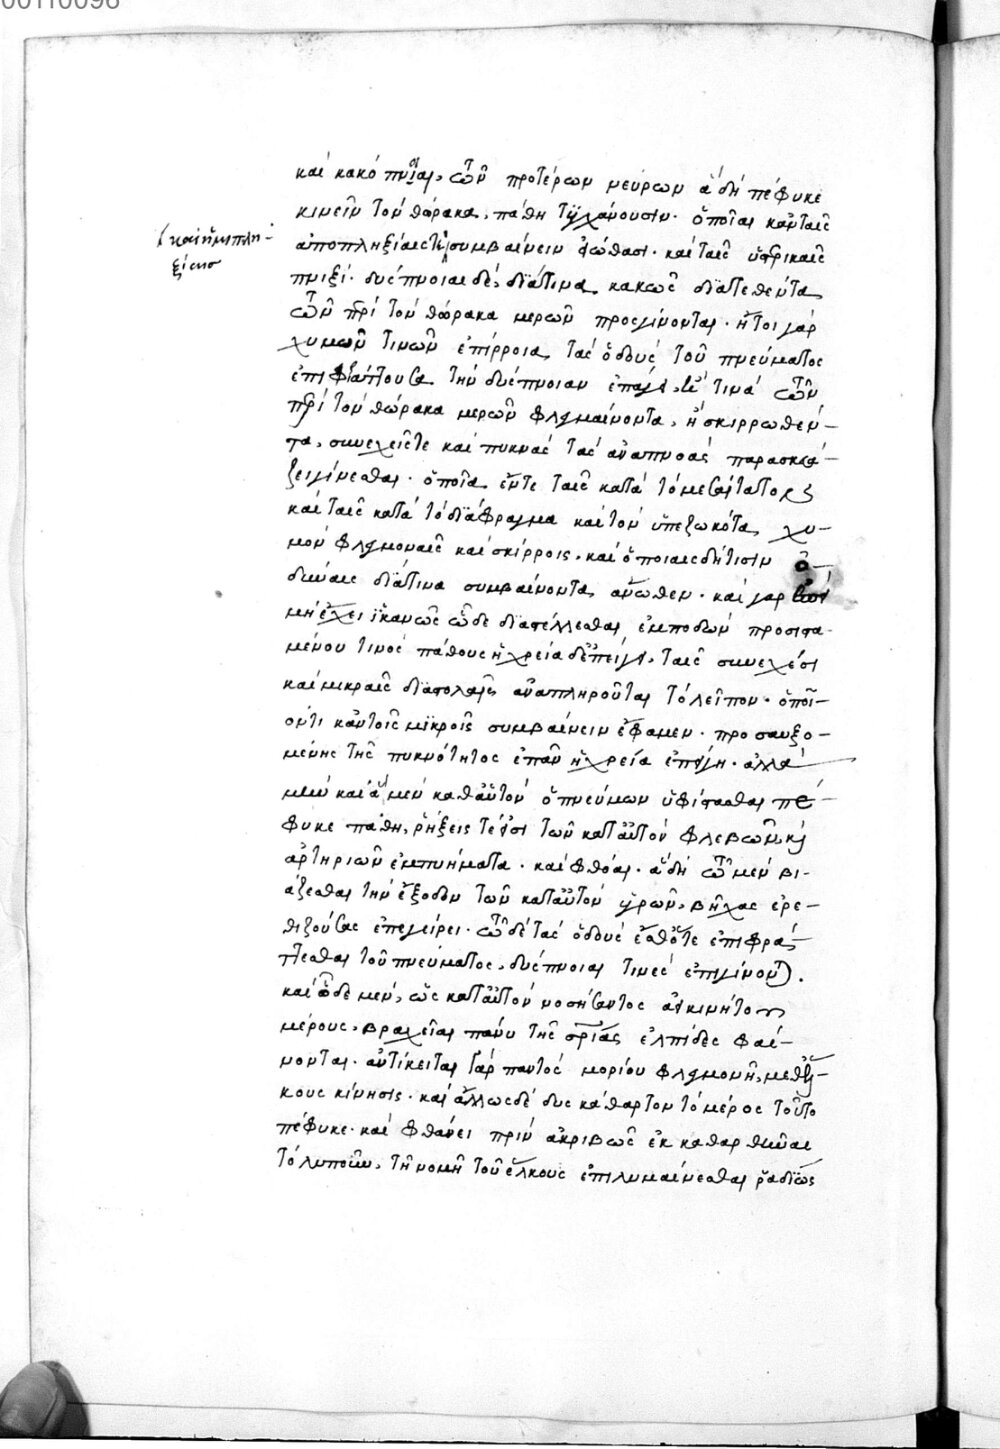 00110096
καὶ κακόπνοιαι, τῶν προτέρων νεύρων ἃ δὴ πέφυκε
κινεῖν τὸν θώρακα, πάθη τυγχάνουσιν· ὁποῖαι κἀν ταῖς
ἀποπληξίαις τε συμβαίνειν εἰώθασι· καὶ ταῖς ὑστερικαῖς
καὶ ἡμιπλη-
ξίαις
πνιξί· δύσπνοιαι δὲ, διά τινα κακῶς διατεθέντα
τῶν περὶ τὸν θώρακα μερῶν προσγίνονται· ἤτοι γὰρ
χυμῶν τινῶν ἐπίρροια τὰς ὁδοὺς τοῦ πνεύματος
τὴν δύσπνοιαν τινὰ τῶν
περὶ τὸν θώρακα μερῶν φλεγμαίνοντα, ἢ σκιρρωθέν-
τα, συνεχεῖς τε καὶ πυκνὰς τὰς ἀναπνοὰς παρασκευά-
ζει γίνεσθαι· ὁποῖα ἔν τε ταῖς κατὰ τὸ
καὶ ταῖς κατὰ τὸ διάφραγμα καὶ τὸν ὑπεζωκότα χυ-
μὸν φλεγμοναῖς καὶ σκίρροις, καὶ ὁποίαις δήτισιν ὀ-
δύναις διά τινα συμβαίνοντα ἄνωθεν· καὶ γὰρ
μὴ ἔχει ἱκανῶς ὧδε διαστέλλεσθαι ἐμποδὼν προσιστα-
μένου τινὸς πάθους ἡ χρεία δ' ἐπείγει, ταῖς συνεχέσι
καὶ μικραῖς διαστολαῖς ἀναπληροῦται τὸ λεῖπον· ὁποῖ-
όν τι κἀν τοῖς μικροῖς συμβαίνειν ἔφαμεν· προσαυξο-
μένης τῆς πυκνότητος ἐπὰν ἡ χρεία ἐπείγῃ· ἀλλὰ
μὴν καὶ ἃ μὲν καθ' αὑτὸν ὁ πνεύμων ὑφίστασθαι πέ-
φυκε πάθη, ῥήξεις τέ εἰσι τῶν κατ' αὐτὸν φλεβῶν καὶ
ἀρτηριῶν ἐμπυήματα· καὶ φθόαι· ἃ δὴ τῷ μὲν βι-
άζεσθαι τὴν ἔξοδον τῶν κατ' αὐτὸν ὑγρῶν, βῆχας ἐρε-
θιζούσας ἐπεγείρει· τῷ δὲ τὰς ὁδοὺς ἔσθ' ὅτε ἐπιφράτ-
τεσθαι τοῦ πνεύματος, δύσπνοιαί τινες ἐπιγίνονται.
καὶ ὧδε μὲν, ὡς κατ' αὐτὸν νοσήσαντος ἀεικινήτου
μέρους, βραχεῖαι πάνυ τῆς σωτηρίας ἐλπίδες φαί-
νονται· ἀντίκειται γὰρ παντὸς μορίου φλεγμονῇ, μεθ' ἕλ-
κους κίνησις· καὶ ἄλλως δὲ δυσκάθαρτον τὸ μέρος τοῦτο
πέφυκε· καὶ φθάνει πρὶν ἀκριβῶς ἐκκαθαρθῆναι
τὸ λυποῦν, τῇ νομῇ τοῦ ἕλκους ἐπιλυμαίνεσθαι ῥᾳδίως